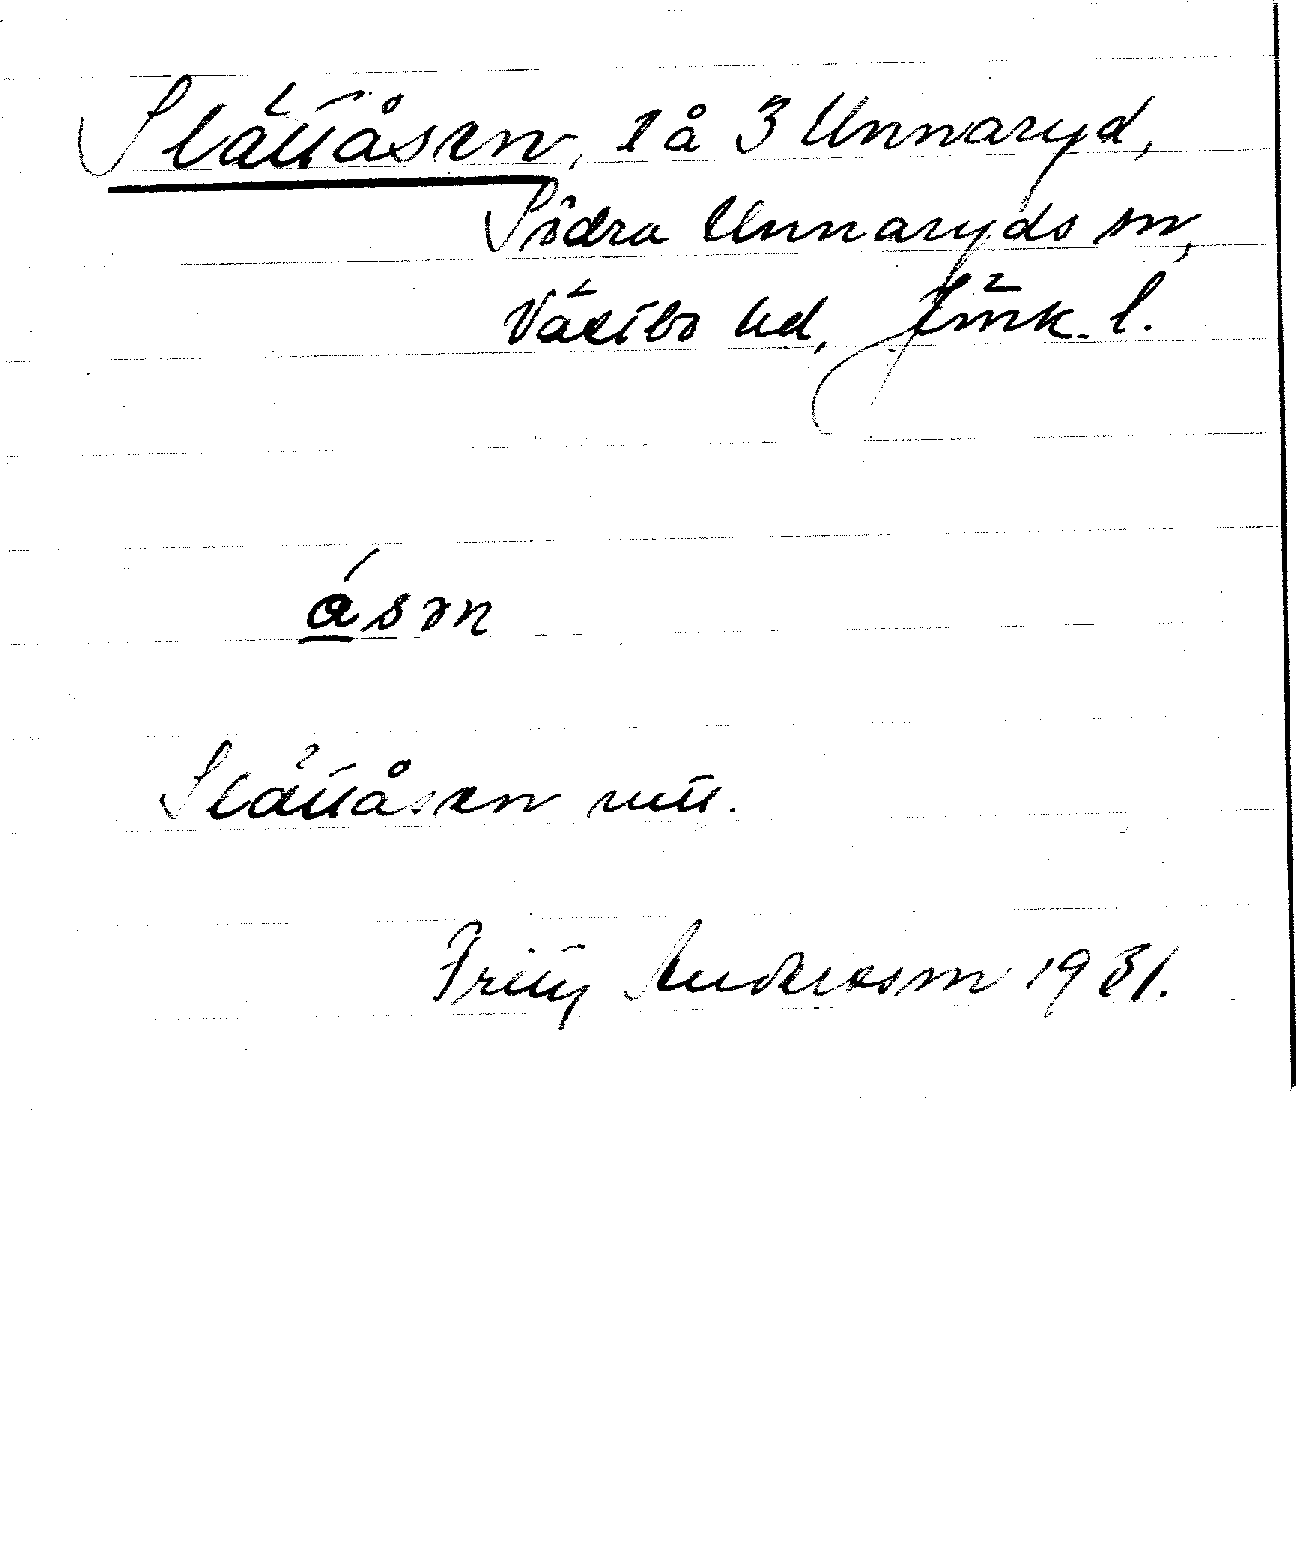 Slättåsen, l å 3 Unnaryd,
Södra Unnaryds sn,
Västbo hd, Jönk. l.
åsen
Slättåsen utt.
Fritz Andersson 1931.